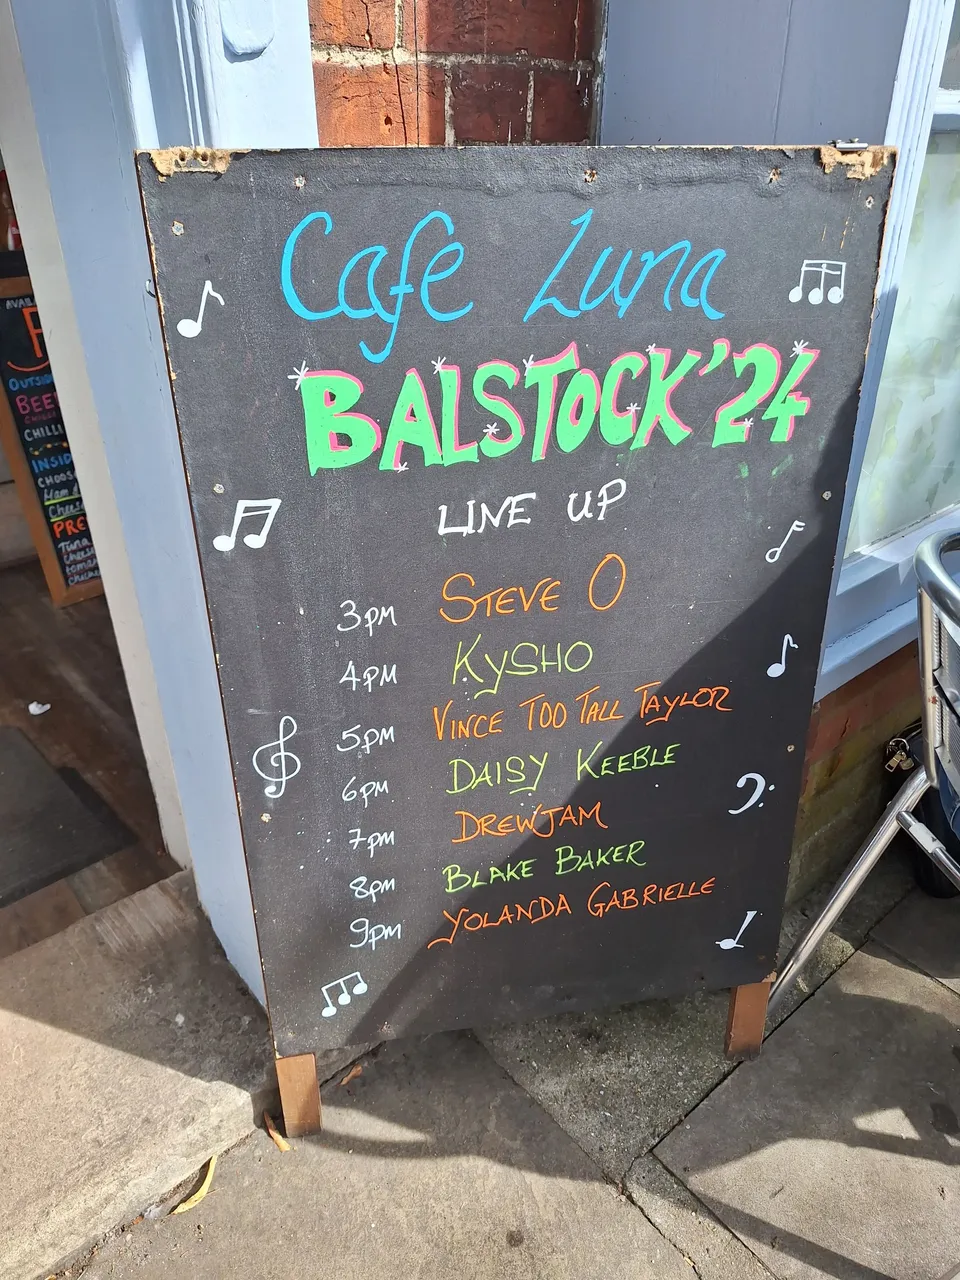 Cafe Luna
BALSTOCK '24
LINE UP
3PM STEVE O
4PM KYSHO
5PM VINCE TOO TALL TAYLOR
6PM DAISY KEEBLE
7PM DREWJAM
8PM BLAKE BAKER
9PM YOLANDA GABRIELLE
CHILLI
INSID
CHOOS
Ham &
Cheese
PRE
Tuna
Cheese